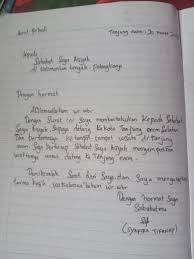 Surat Pribadi
Tanjung enim, 30 maret
Kepada
Sahabat Saya Aisyah
di Kalimantan tengah - palangkaraya
Dengan hormat
Assalamualaikum wr.wb
Dengan Surat ini Saya memberitahukan Kepada Sahabat
Saya Aisyah, Supaya datang ke kota Tanjung enim
dan berlibur ke tempat-tempat wisata di tanjung
enim Saya berharap Sahabat Saya Aisyah
untuk datang ke Tanjung enim.
Demikianlah Surat dari Saya dan Saya mengucapkan
terima kasih wassalamualaikum wr.wb
Dengan hormat Saya
Sahabatmu